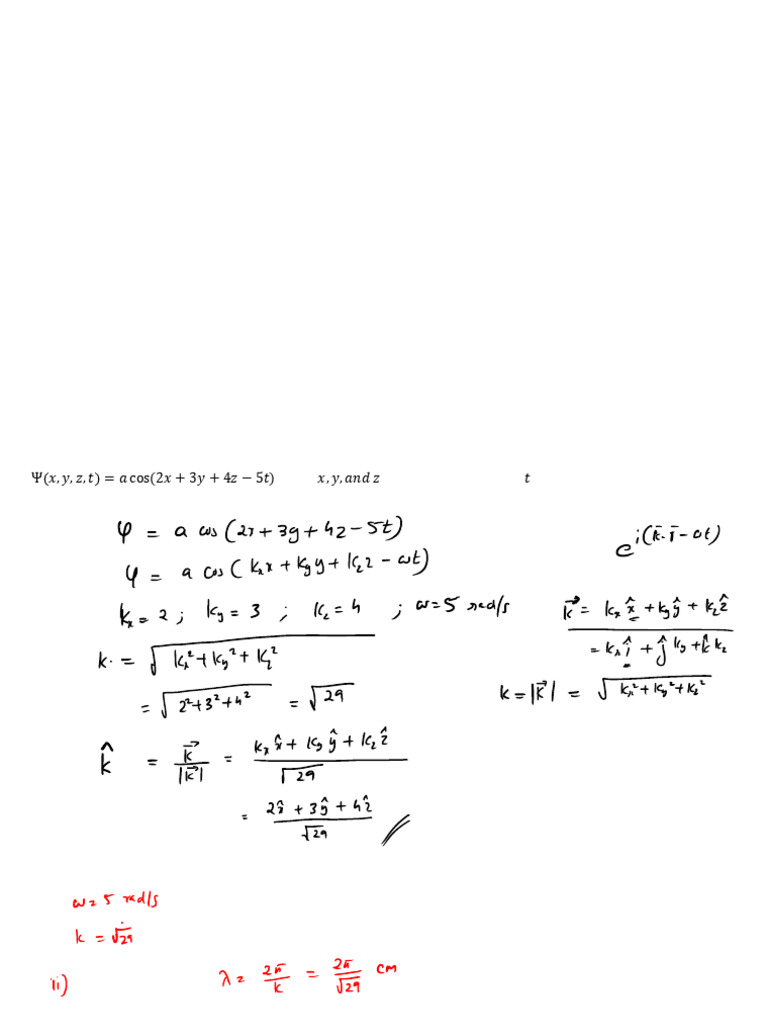 Ψ(x, y, z, t) = a cos(2x + 3y + 4z − 5t) x, y, and z t
φ = a cos (2x + 3y + 4z − 5t)
e^{i(k̄·r̄ − ωt)}
φ = a cos (kₓx + k_y y + k_z z − ωt)
kₓ = 2 ; k_y = 3 ; k_z = 4 ; ω = 5 rad/s
k⃗ = kₓ x̂ + k_y ŷ + k_z ẑ
= kₓ î + ĵ k_y + k̂ k_z
k. = √(kₓ² + k_y² + k_z²)
= √(2² + 3² + 4²) = √29
k = |k⃗| = √(kₓ² + k_y² + k_z²)
k̂ = k⃗/|k⃗| = (kₓ x̂ + k_y ŷ + k_z ẑ)/√29
= (2x̂ + 3ŷ + 4ẑ)/√29
ω = 5 rad/s
k = √29
ii) λ = 2π/k = 2π/√29 cm